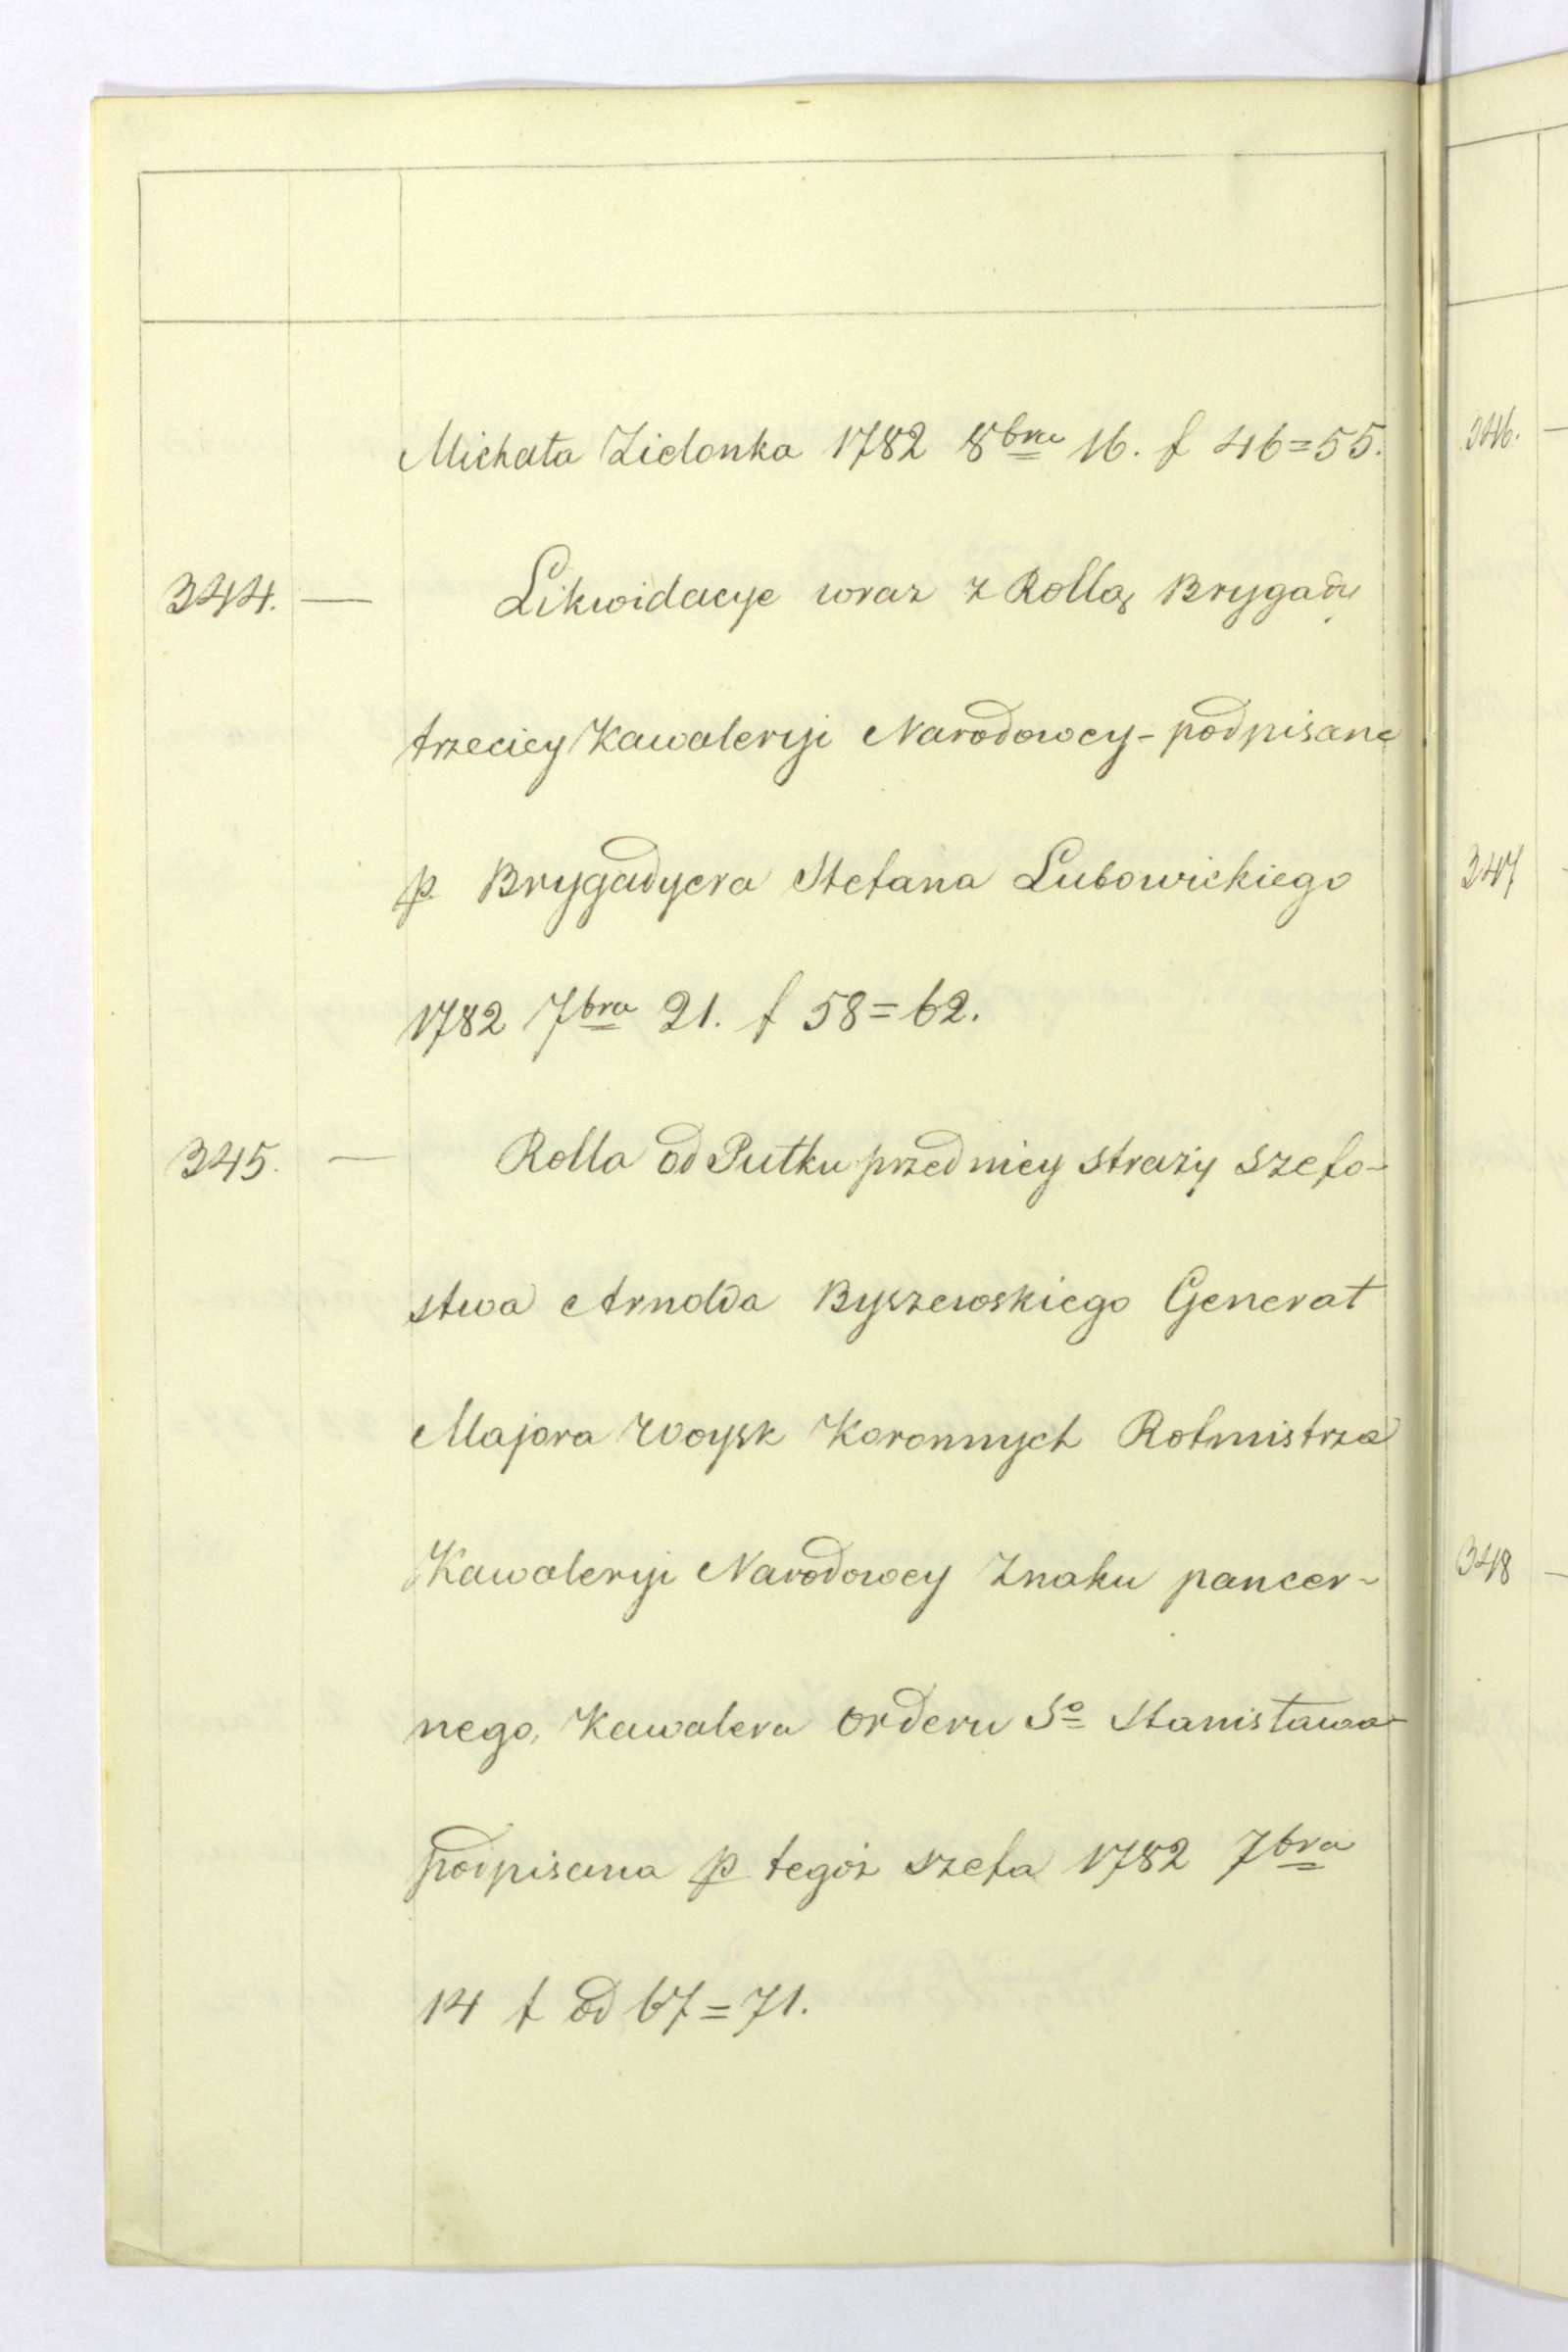 Michała Zielonka 1782 8bra 16. f 46=55.
344. — Likwidacye wraz z Rollą Brygady
trzeciey Kawaleryi Narodowey - podpisane
p. Brygadyera Stefana Lubowickiego
1782 7bra 21. f 58=62.
345. — Rolla od Pułku przedniey straży szefo-
stwa Arnolda Byszewskiego Generał
Majora Woysk Koronnych Rotmistrza
Kawaleryi Narodowey Znaku pancer-
nego, Kawalera Orderu So Stanisława
podpisana p tegoż szefa 1782 7bra
14 f od 67=71.
346. —
347
348 —